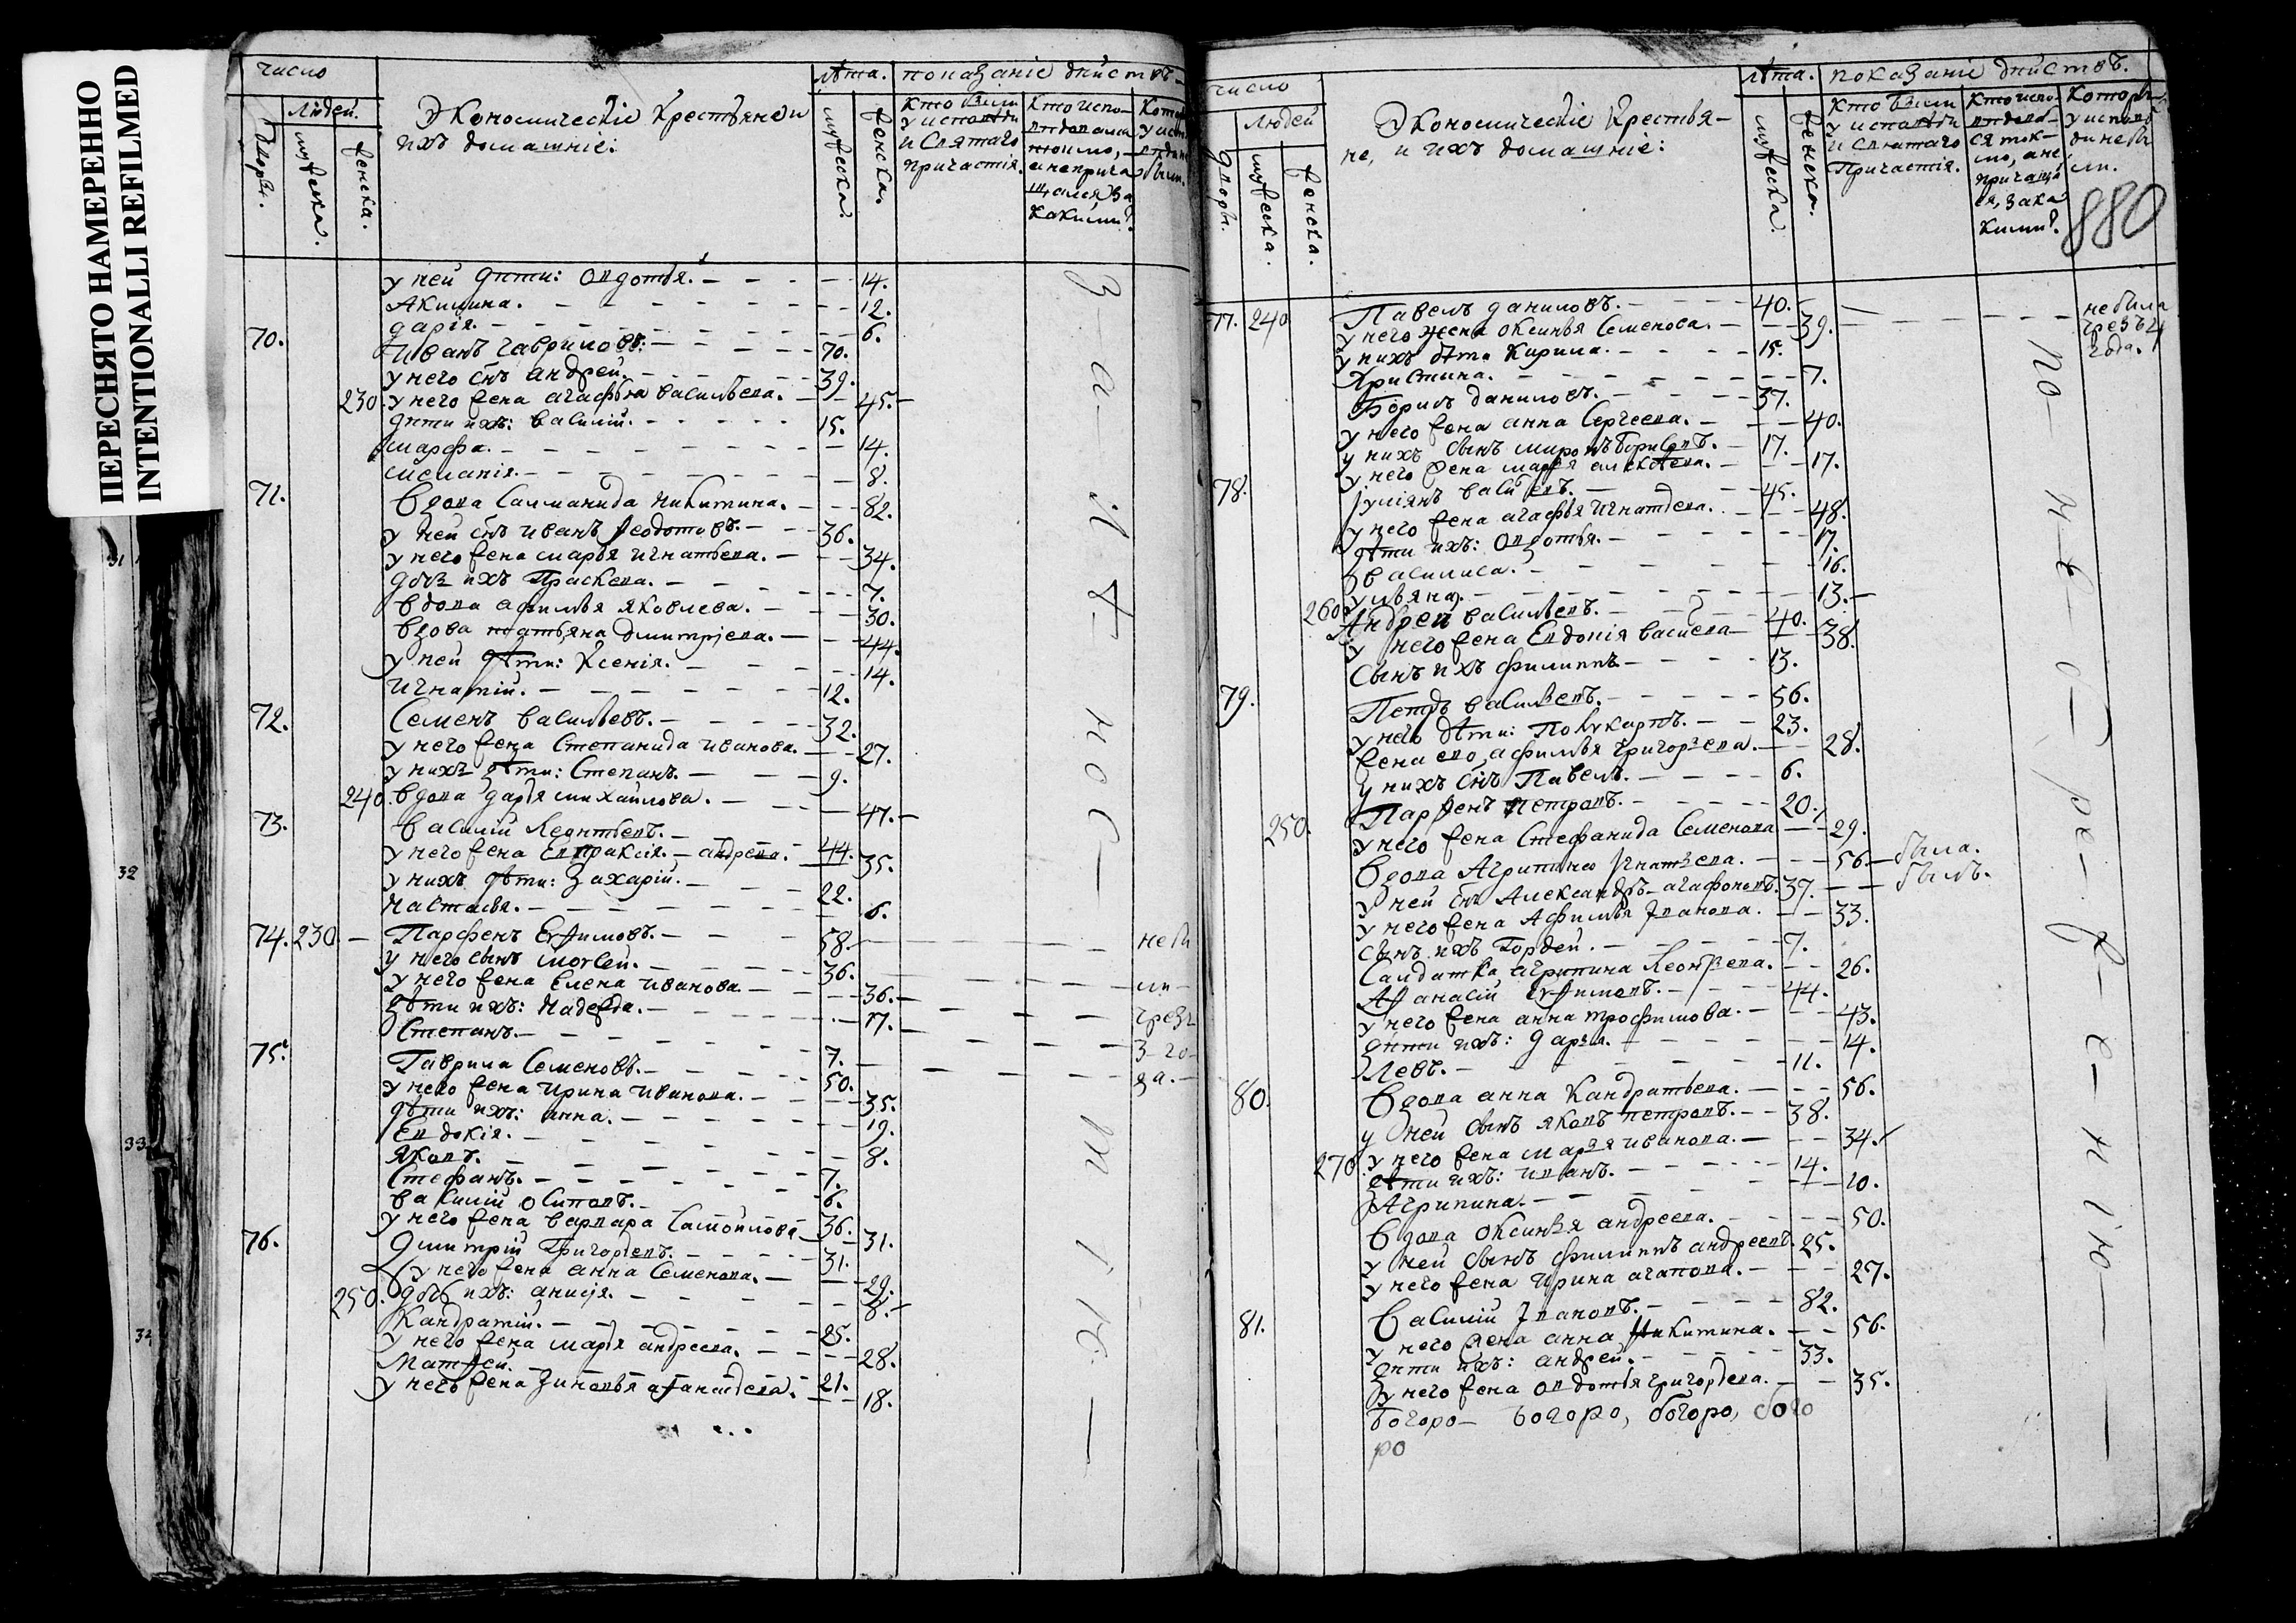 ПЕРЕСНЯТО НАМЕРЕННО
INTENTIONALLI REFILMED
31
32
33
34
число
людей.
дворы.
мужеска.
женска.
Экономическіе крестьяне и
ихъ домашніе:
лѣта.
мужеска.
женска.
показаніе дѣйствъ
кто были
у исповѣди
и Святаго
причастія.
кто испо-
вѣдолися
токмо,
а неприча
щался за
какими?
у ней дѣти: Овдотья. 14.
Акилина. 12.
дарія. 6.
70. Иванъ гавриловъ. 70.
у него снъ андрей. 39.
230. у него жена агафья васильева. 45.
дѣти ихъ: василій. 15.
марфа. 14.
меланія. 8.
71. вдова Саламанида никитина. 82.
у ней снъ иванъ Ѳедотовъ. 36.
у него жена марья игнатьева. 34.
дочь ихъ Праскева. 7.
вдова афимья яковлева. 30.
вдова татьяна дмитріева. 44.
у ней дѣти: Ксенія. 14.
игнатій. 12.
72. Семенъ васильевъ. 32.
у него жена Степанида иванова. 27.
у нихъ дѣти: Степанъ. 9.
240. вдова дарья михаилова. 47.
73. василій леонтьевъ. 44.
у него жена Евпраксія. андрева. 35.
у нихъ дѣти: Захарій. 22.
настасья. 6.
74. 230 Парфенъ Евѳимовъ. 58. небы
у него сынъ моѵсей. 36.
у него жена Елена иванова. 36. ли
дѣти ихъ: надежда. 17. чрезъ
Степанъ. 7. 3 го
75. Гаврила Семеновъ. 50. да.
у него жена ирина иванова. 35.
дѣти ихъ: анна. 19.
Евдокія. 8.
яковъ. 7.
Стефанъ. 6.
василій осиповъ. 36.
у него жена варвара Самоилова 31.
76. дмитрій Григорьевъ. 31.
у него жена анна Семенова. 29.
250. дочь ихъ: анисія. 8.
Кандратій. 25.
у него жена марья андреева. 28.
Матѳей. 21.
у него жена Зиновья аѳанасьева. 18.
число
людей
дворы.
мужеска.
женска.
Экономическіе крестья-
не, и ихъ домашніе:
лѣта.
мужеска.
женска.
показаніе дѣйствъ.
кто были
у исповѣди
и святаго
Причастія.
кто испо-
вѣдолся
ся ток-
мо, а не
причащ
ся, за ка
кими?
которы
у исповѣ
ди небы
ли.
880
77. 240 Павелъ даниловъ. 40. небыли
у него жена оксинья Семенова. 39. чрезъ 4
у нихъ дѣти Кирила. 15. года.
Христина. 7.
Борисъ даниловъ. 37.
у него жена анна Сергеева. 40.
у нихъ сынъ миронъ борисовъ. 17.
у него жена марья алексѣева. 17.
78. Іуліянъ васильевъ. 45.
у него жена агафья игнатьева. 48.
дѣти ихъ: Овдотья. 17.
василиса. 16.
260. ульяна. 13.
Андрей васильевъ. 40.
у него жена Евдокія васильева 38.
Сынъ ихъ филиппъ 13.
79. Петръ васильевъ. 56.
у него дѣти: Полѵкарпъ. 23.
жена его, афимья григорьева. 28.
у нихъ снъ Павелъ. 6.
Парѳенъ петровъ. 20.
250. у него жена Стефанида Семенова 29.
вдова Агрипина Игнатьева. 56 была.
у ней снъ Александръ агафоновъ. 37. былъ.
у него жена Афимья Іванова. 33.
сынъ ихъ Гордей. 7.
Салдатка агрипина леонтьева. 26.
Аѳанасій Евѳимовъ. 44.
у него жена анна трофимова. 43.
дѣти ихъ: дарья. 14.
левъ. 11.
80. вдова анна Кандратьева. 56.
у ней сынъ яковъ петровъ. 38.
270 у него жена марья иванова. 34.
дѣти ихъ: иванъ. 14.
Агрипина. 10.
вдова оксинья андреева. 50.
у ней сынъ филиппъ андреевъ. 25.
у него жена ирина агапова. 27.
81. василій Івановъ. 82.
у него жена анна никитина. 56.
дѣти ихъ: андрей. 33.
у него жена овдотья григорьева. 35.
Богоро- богоро, богоро, бого
ро